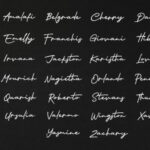 Amalafi Belgrade Cherry
Emelly Franchis Giovani
Irvana Jackston Karistha
Mourich Nagietha Orlando
Quarish Roberto Stevans
Ursulia Valermo Wingston
Yasmine Zachary